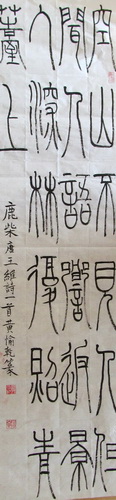 空山不見人但
聞人語響返景
入深林復照青
苔上
鹿柴 唐王維詩一首 黄倫乾篆